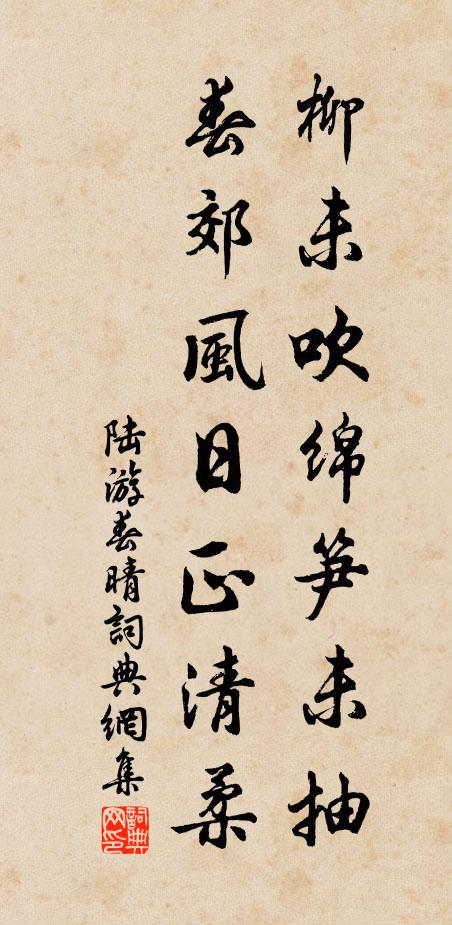 柳未吹绵笋未抽
春郊風日正清柔
陆游春晴詞典網集
詞典网印